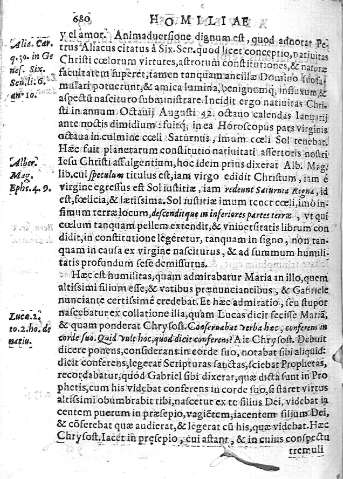 680 HOMILIAE
y el amor. Animaduersione dignum est, quod adnotat Pe-
Alia. Car.
q.30. in Ge
nes. Six.
Sen. li. 6.
an. 10.
trus Aliacus citatus à Six. Sen. quod licet conceptio, natiuitas
Christi cœlorum virtutes, astrorum constitutiones, & naturæ
facultatem superet, tamen tanquam ancillæ Domino
mulari potuerunt, & amica lumina, benignumq; influxum &
aspectũ nascituro subministrare. Incidit ergo natiuitas Chri-
sti in annum Octauij Augusti 42. octauo calendas Ianuarij
ante noctis dimidium: fuitq; in ea Horoscopus pars virginis
octaua in culmine cœli Saturnus, imum cœli Sol tenebat.
Hæc fuit planetarum constitutio natiuitati assertoris nostri
Alber.
Mag.
Ephe. 4. 9.
Iesu Christi assulgentium, hoc idem prius dixerat Alb. Mag.
lib. cui speculum titulus est, iam virgo edidit Christum, iam è
virgine egressus est Sol iustitiæ, iam redeunt Saturnia Regna, id
est, fœlicia, & lætissima. Sol iustitiæ imum tenet cœli, imo in-
fimum terræ locum, descenditque in inferiores partes terræ, vt qui
cœlum tanquam pellem extendit, & vniuersitatis librum con
didit, in constitutione legeretur, tanquam in signo, non tan-
quam in causa ex virgine nasciturus, & ad summum humili-
tatis profundum sese demissurus.
Hæc est humilitas, quam admirabatur Maria an illo, quem
altissimi filium esse, & vatibus prænunciantibus, & Gabriele
nunciante certissimè credebat. Et hæc admiratio, seu stupor
Luca. 2.
to. 2. ho. de
natiu.
nascebatur ex collatione illa, quam Lucas dicit fecisse Mariã,
& quam ponderat Chrysost. Conseruabat verba hæc, conferens in
corde suo. Quid vult hoc, quod dicit conferens? Ait Chrysost. Debuit
dicere ponens, considerans in corde suo, notabat sibi aliquid:
dicit conferens, legerat Scripturas sanctas, sciebat Prophetas,
recordabatur, quid Gabriel sibi dixerat, quæ dicta sunt in Pro
phetis, cum his videbat conferens in corde suo, si staret virtus
altissimi obumbrabit tibi, nascetur ex te filius Dei, videbat ia
centem puerum in præsepio, vagiẽtem, iacentem filium Dei,
& cõferebat quæ audierat, & legerat cũ his, quæ videbat. Hæc
Chrysost. Iacet in præsepio, cui astant, & in cuius conspectu
tremuli